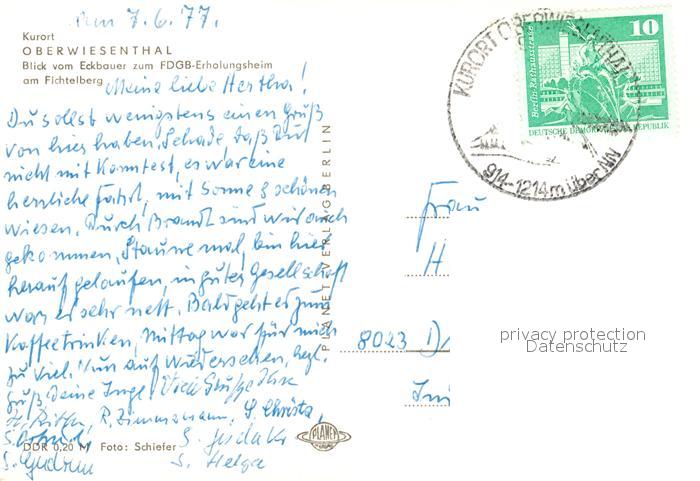 am 7.6.77.
Kurort
OBERWIESENTHAL
Blick vom Eckbauer zum FDGB-Erholungsheim
am Fichtelberg
Meine liebe Hertha!
Du sollst wenigstens einen Gruß
von hier haben, Schade, daß Du
nicht mit konntest, es war eine
herrliche Fahrt, mit Sonne & schönen
wiesen. Durch Brand sind wir auch
gekommen, Staune mal, bin hier
herauf gelaufen, in guter Gesellschaft
war es sehr nett. Bald geht es zum
Kaffeetrinken, Mittag war für mich
zu viel. Nun auf wiedersehen, hzgl.
Gruß Deine Inge. Viele Grüße
R. Zimmermann, S. Christa,
S. S.
DDR 0,20 M Foto: Schiefer
S. Gudrun S. Helga
PLANET-VERLAG BERLIN
PLANET
KURORT OBERWIESENTHAL
914-1214m über NN
Berlin-Rathausstraße
10
DEUTSCHE DEMOKRATISCHE REPUBLIK
Frau
H
8023 D
privacy protection
Datenschutz